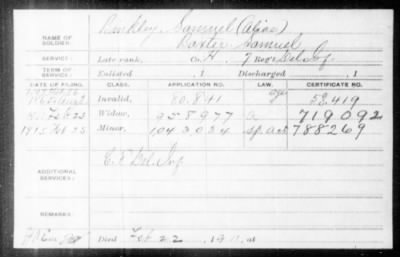 Binkley, Samuel (Alias)
NAME OF SOLDIER: Baxter, Samuel
SERVICE: Late rank, Co. H, 7 Reg't Del. Inf.
TERM OF SERVICE: Enlisted , 1 Discharged , 1
DATE OF FILING. CLASS. APPLICATION NO. LAW. CERTIFICATE NO.
Invalid, 80.841 53,419
Widow, 958977 719092
1915 Feb 23 Minor, 1043034 sp. act 788269
ADDITIONAL SERVICES: C. E Del. Inf
REMARKS:
Died Feb 22, 1911, at